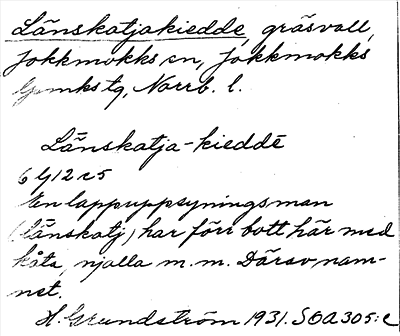 Länskatjakiedde, gräsvall,
Jokkmokks sn, Jokkmokks
lpmks tg, Norrb. l.
Länskatja-kiedde
6 Y 12 c 5
En lappuppsyningsman
(länskatj) har förr bott här med
kåta, njalla m.m. Därav nam-
net.
H. Grundström 1931. SOA 305:c